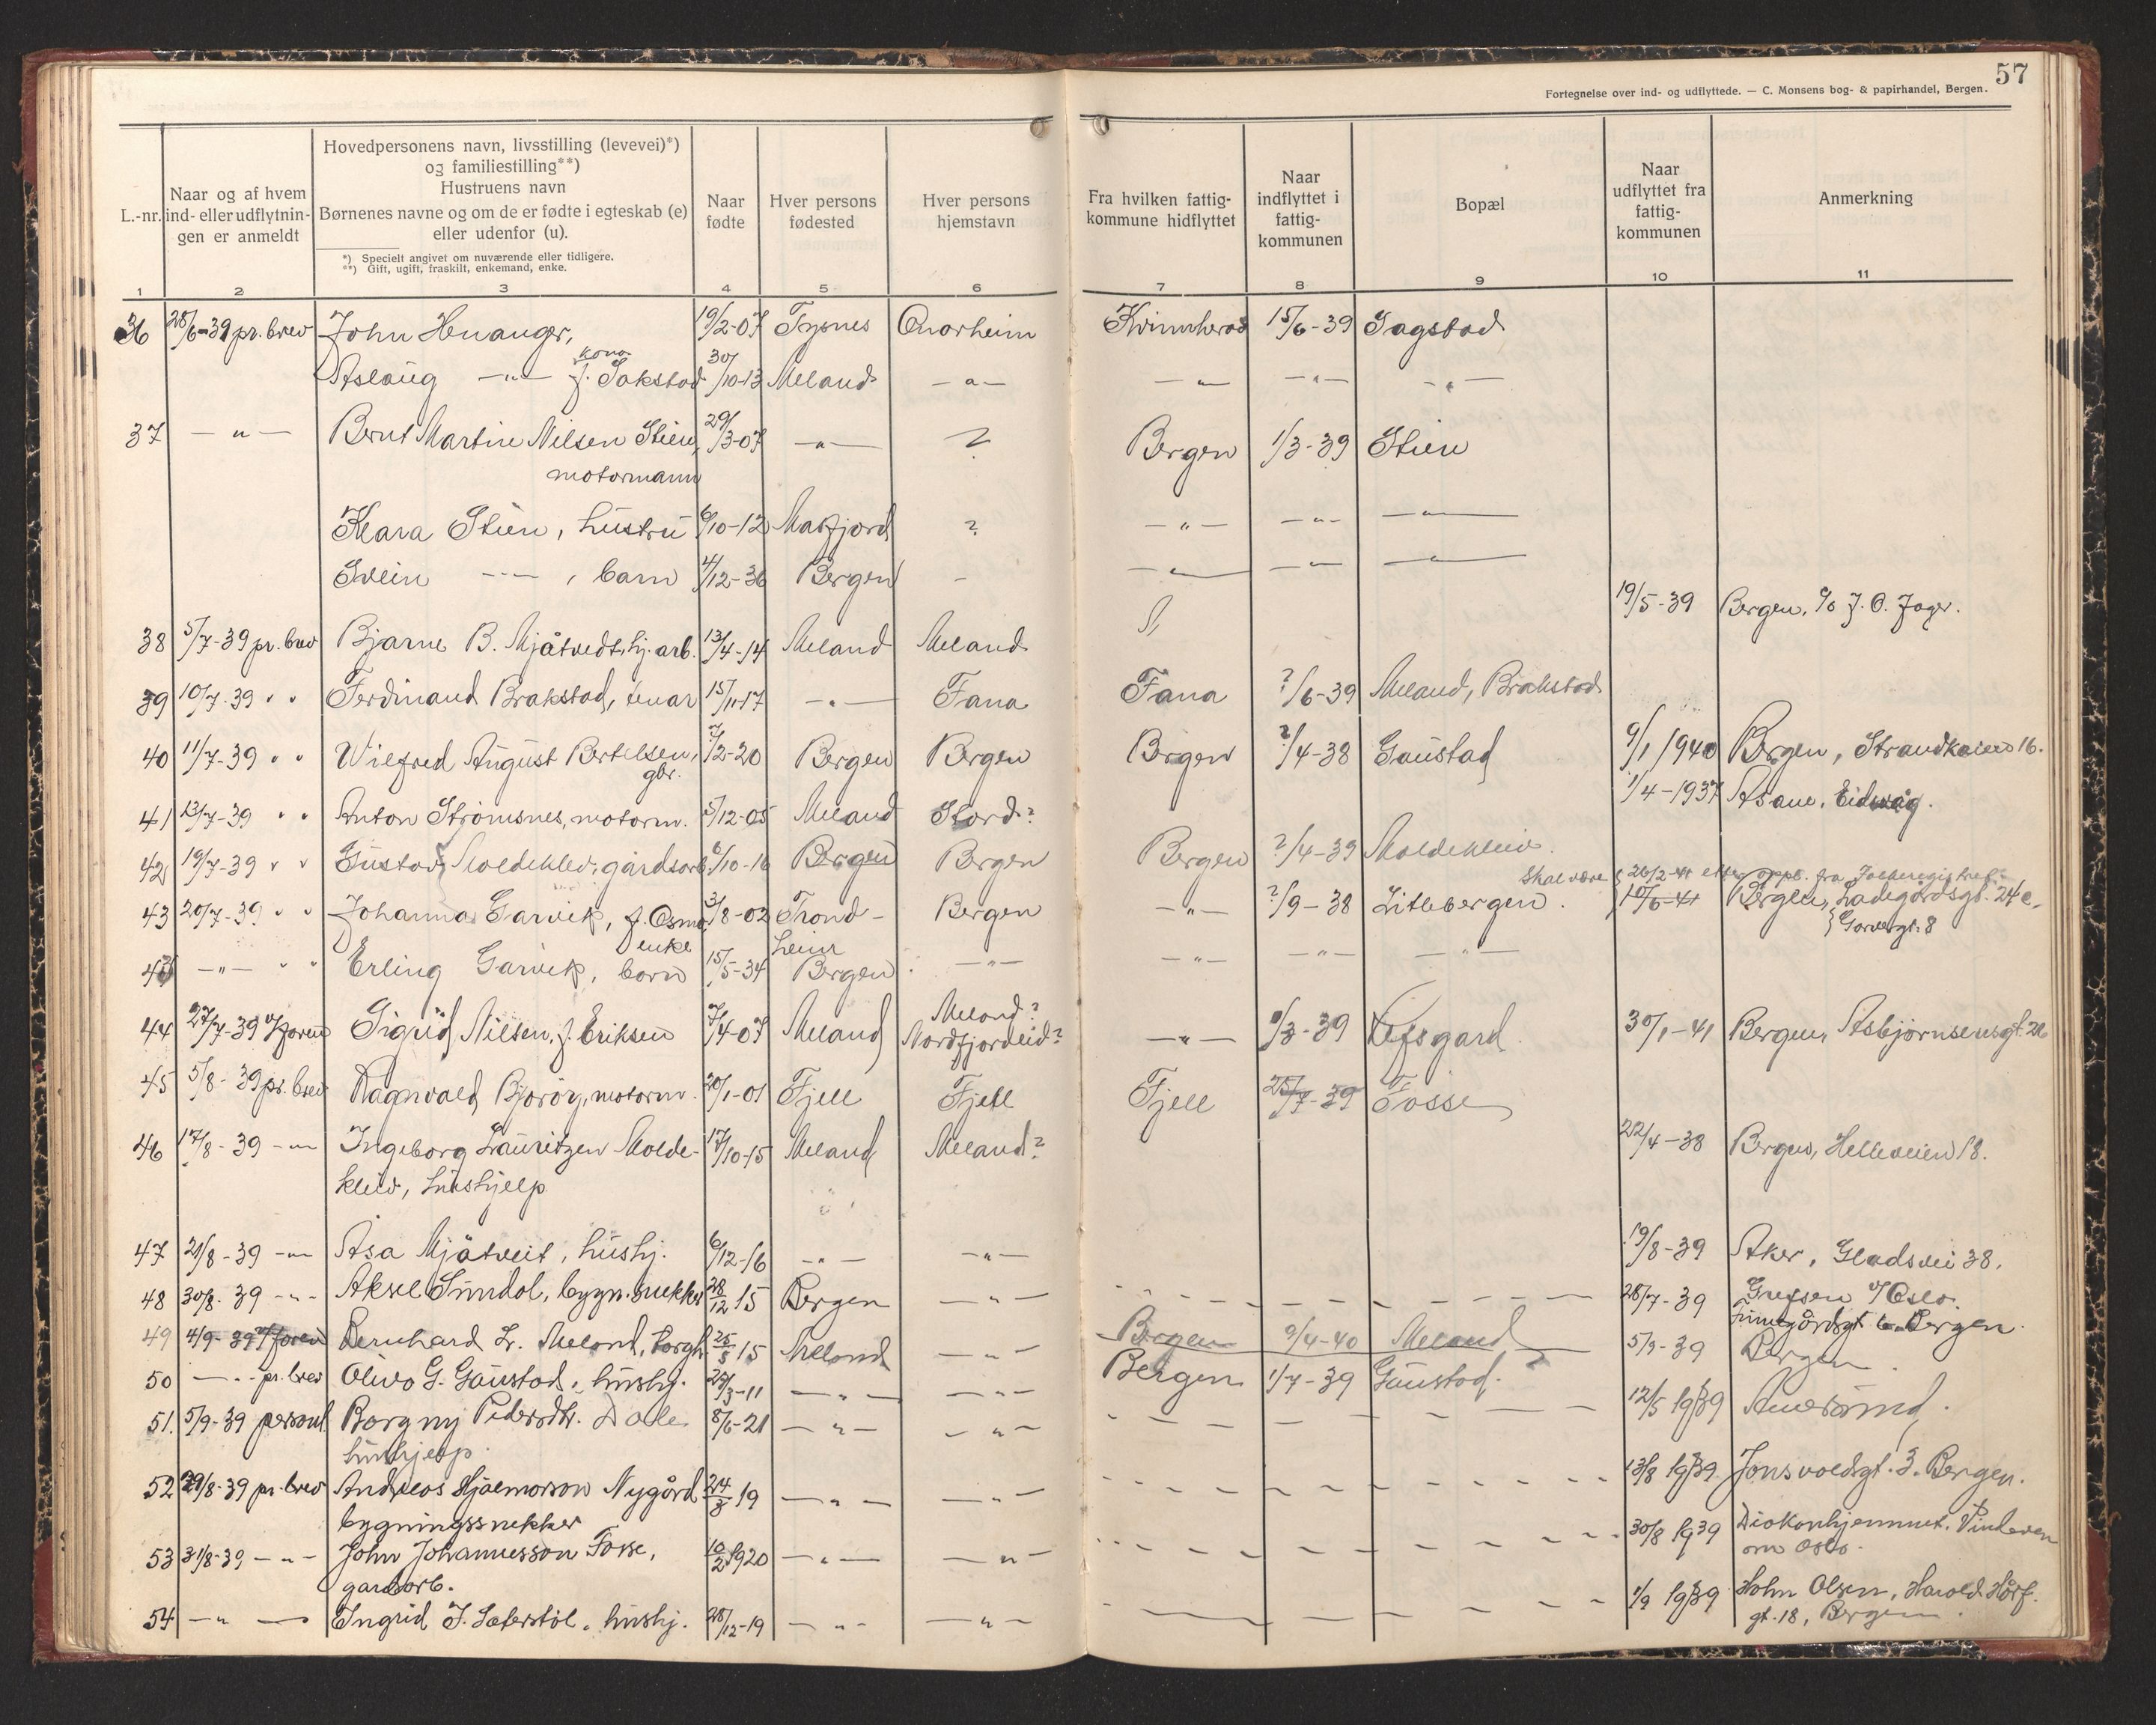 57
Fortegnelse over ind- og udflyttede. — C. Monsens bog- & papirhandel, Bergen.
L.-nr.
Naar og af hvem
ind- eller udflytnin-
gen er anmeldt
Hovedpersonens navn, livsstilling (levevei)*)
og familiestilling**)
Hustruens navn
Børnenes navne og om de er fødte i egteskab (e)
eller udenfor (u).
*) Specielt angivet om nuværende eller tidligere.
**) Gift, ugift, fraskilt, enkemand, enke.
Naar
fødte
Hver persons
fødested
Hver persons
hjemstavn
Fra hvilken fattig-
kommune hidflyttet
Naar
indflyttet i
fattig-
kommunen
Bopæl
Naar
udflyttet fra
fattig-
kommunen
Anmerkning
1 2 3 4 5 6 7 8 9 10 11
36 28/6-39 pr. brev John Huanger, 19/2-07 Tysnes Onarheim Kvinnherad 15/6-39 Sagstad
kona
Aslaug —"— f. Sakstad 30/10-13 Meland —"— —"— —"— —"—
37 —"— Bernt Martin Nilsen Stien, 29/3-07 —"— ? Bergen 1/3-39 Stien
motormann
Klara Stien, hustru 6/10-12 Masfjord ? —"— —"— —"—
Svein —"—, barn 4/12-36 Bergen - —"— —"— —"—
38 5/7-39 pr. brev Bjarne B. Mjåtvedt, hj. arb. 13/4-14 Meland Meland 19/5-39 Bergen, c/o J. O. Jager.
39 10/7-39 " " Ferdinand Brakstad, 15/11-17 —"— Fana Fana ?/6-39 Meland, Brakstad
40 11/7-39 " " Wilfred August Bertelsen, ?/2-20 Bergen Bergen Bergen ?/4-38 Gaustad 9/1 1940 Bergen, Strandkaien 16.
gbr.
41 13/7-39 " " Anton Strømsnes, motorm. 5/12-05 Meland Stord? 1/4-1937 Åsane, Eidsvåg.
42 19/7-39 " " Gustav Moldekleiv, gårdsarb. 6/10-16 Bergen Bergen Bergen ?/4-39 Moldekleiv.
Skal være 26/2-41 etter oppl. fra Folkeregistret
43 20/7-39 " " Johanna Garvik, f. Osmo, 3/8-02 Trond- Bergen —"— ?/9-38 Litlebergen. 10/6-41 Bergen, Ladegårdsgt. 24 c.
enke heim Garvergt. 8
43 —"— " " Erling Garvik, barn 15/5-34 Bergen —"— —"— —"— —"—
44 27/7-39 Sigrid Nilsen, f. Eriksen 7/4-07 Meland Meland?
Nordfjordeid? —"— 9/3-39 Refsgard 30/1-41 Bergen, Asbjørnsensgt. 26
45 5/8-39 pr. brev Ragnvald Bjorøy, motorm. 20/1-01 Fjell Fjell Fjell 25/7-39 Fosse
46 17/8-39 —"— Ingeborg Lauritzen Molde- 17/10-15 Meland Meland? 22/4-38 Bergen, Helleveien 18.
kleiv, hushjelp
47 21/8-39 —"— Åsa Mjåtveit, hushj. 6/12-16 —"— —"— 19/8-39 Aker, Gladsvei 38.
48 30/8-39 —"— Aksel Sundal, bygn. snekker 28/12 15 Bergen —"— 28/7-39 Grefsen v/Oslo.
49 4/9-39 Bernhard L. Meland, 25/5 15 Meland —"— Bergen 9/4-40 Meland 5/9-39 Bergen.
50 —"— pr. brev Olivo G. Gaustad, hushj. 27/3-11 —"— —"— Bergen 1/7-39 Gaustad.
51. 5/9-39 personl. Borgny Pedersdtr. Dale 8/6-21 —"— —"— 12/5 1939
hushjelp.
52 29/8-39 pr. brev Andreas Hjalmarson Nygård 24/3 19 —"— —"— 13/8 1939 Jonsvoldgt. 3. Bergen.
bygningssnekker
53 31/8-39 —"— John Johannesson Fosse, 10/2 1920 —"— —"— 30/8 1939 Diakonhjemmet, Vinderen
gardarb. om Oslo.
54 —"— Ingrid J. Sæterstøl, hushj. 28/12-19 —"— —"— 1/9 1939 John Olsen, Harald Hårf.
gt. 18, Bergen.